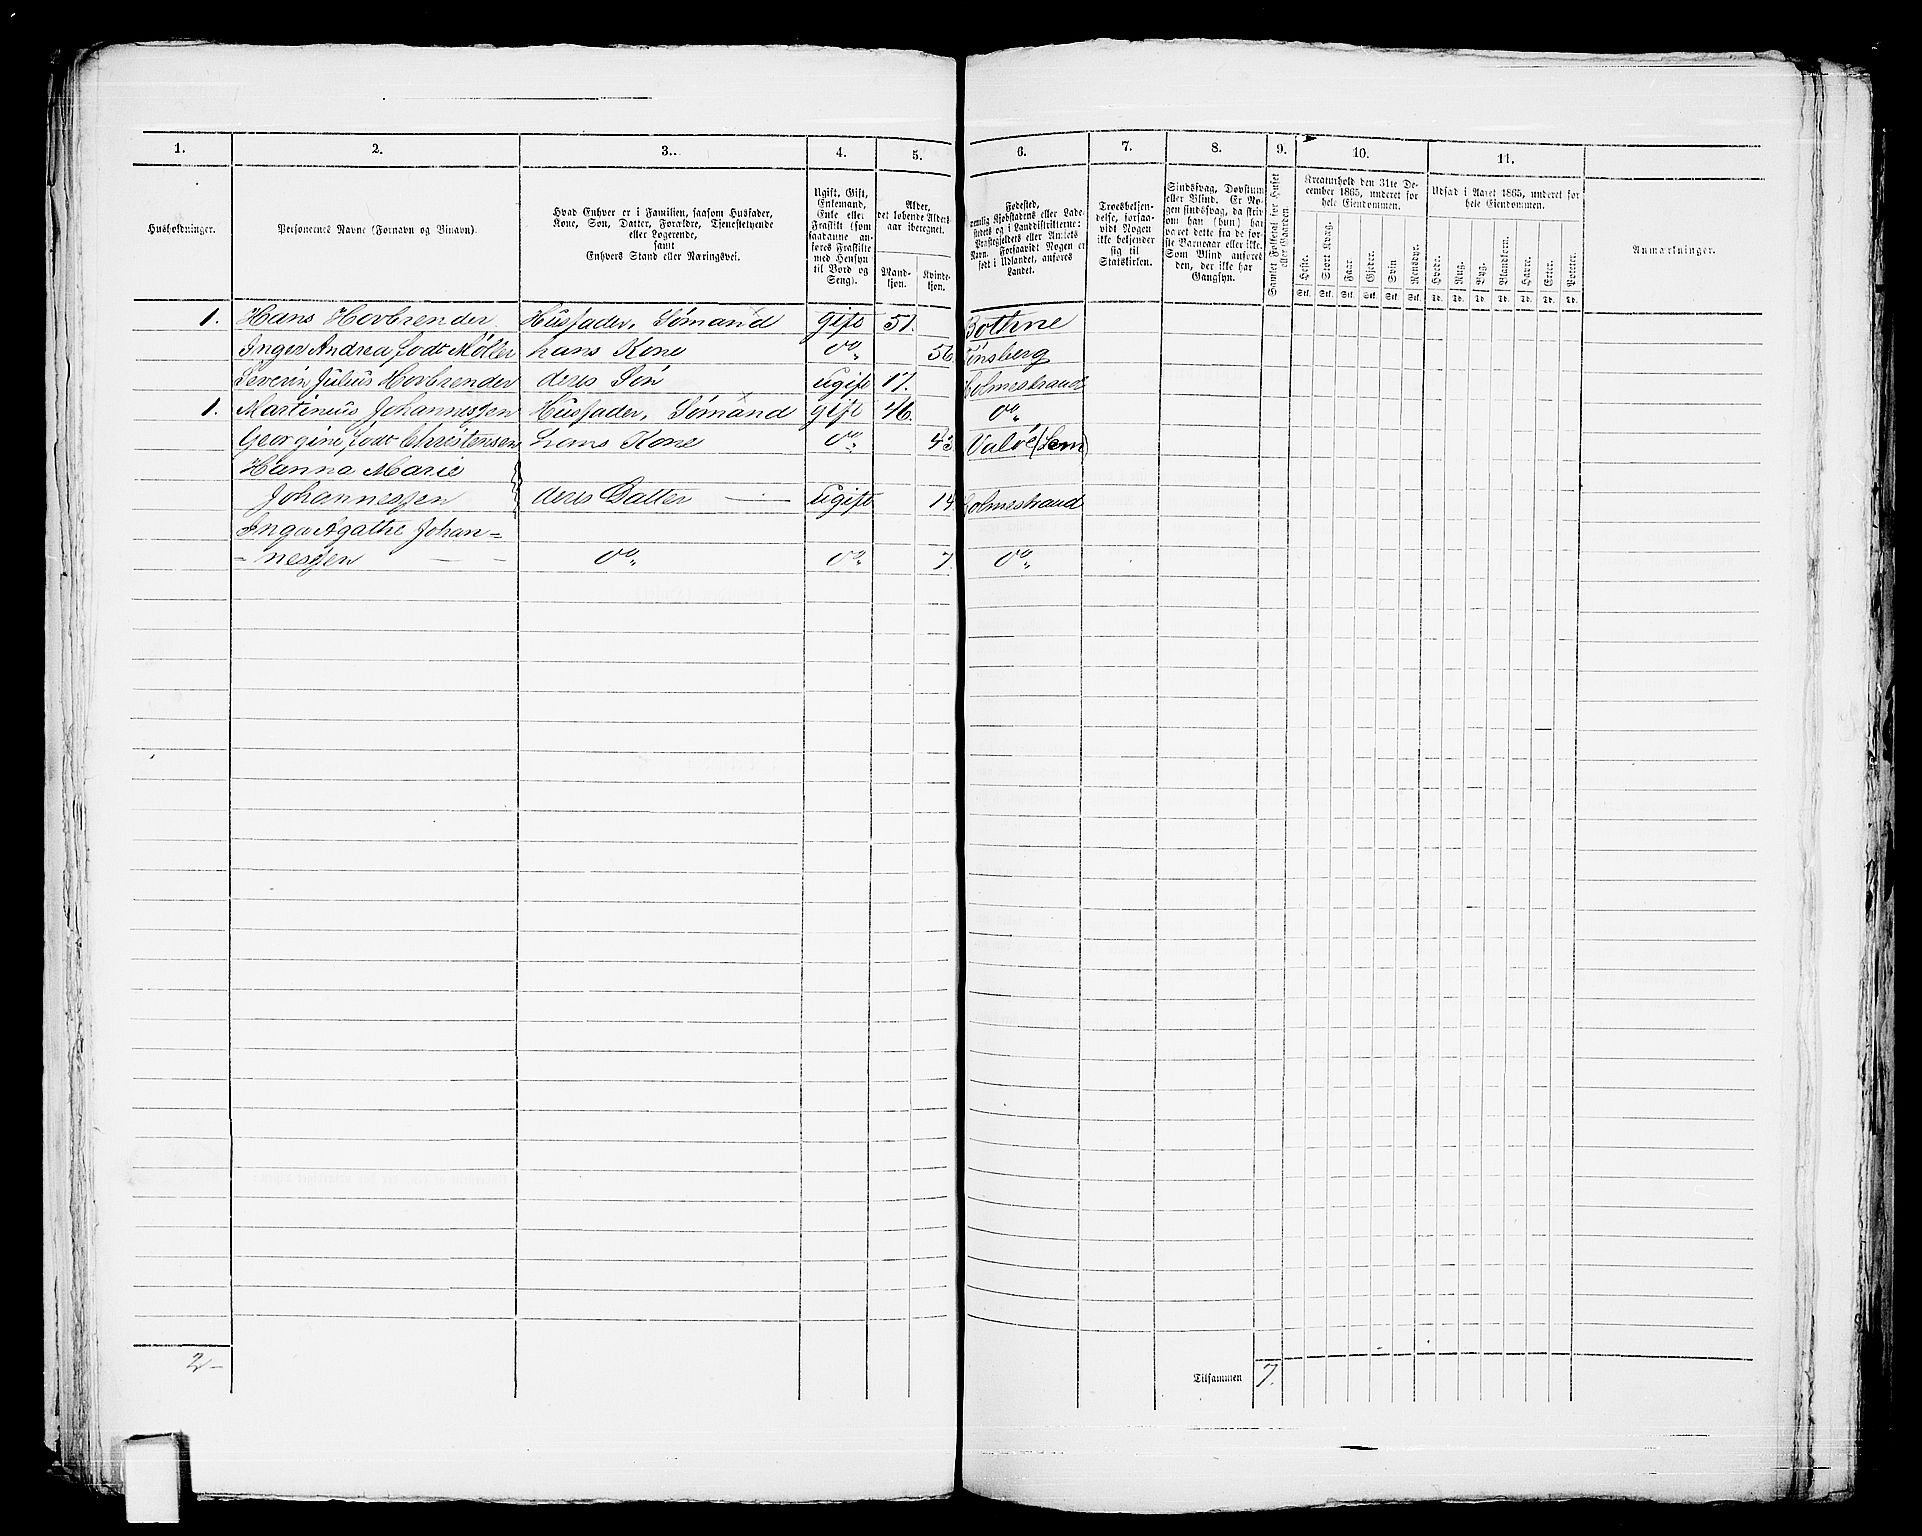 1. 2. 3. 4. 5. 6. 7. 8. 9. 10. 11.
Husholdninger.
Personernes Navne (Fornavn og Binavn).
Hvad Enhver er i Familien, saasom Husfader,
Kone, Søn, Datter, Forældre, Tjenestetyende
eller Logerende,
samt
Enhvers Stand eller Næringsvei.
Ugift, Gift,
Enkemand,
Enke eller
Fraskilt (som
saadanne an-
føres Fraskilte
med Hensyn
til Bord og
Seng).
Alder,
det løbende Alders-
aar iberegnet.
Mand-
kjøn.
Kvinde-
kjøn.
Fødested,
nemlig Kjøbstadens eller Lade-
stedets og i Landdistrikterne:
Præstegjeldets eller Amtets
Navn. Forsaavidt Nogen er
født i Udlandet, anføres
Landet.
Troesbekjen-
delse, forsaa-
vidt Nogen
ikke bekjender
sig til
Statskirken.
Sindssvag, Døvstum
eller Blind. Er No-
gen sindssvag, da skriv
om han (hun) har
været dette fra de før-
ste Barneaar eller ikke.
Som Blind anføres
den, der ikke har
Gangsyn.
Samlet Folketal for Huset
eller Gaarden
Kreaturhold den 31te De-
cember 1865, underet for
hele Eiendommen.
Heste. Stort Kvæg. Faar Gjeder. Svin Rensdyr.
Stk. Stk. Stk. Stk. Stk. Stk.
Udsæd i Aaret 1865, underet for
hele Eiendommen.
Hvede. Rug. Byg. Blandkorn. Havre. Erter. Poteter.
Td. Td. Td. Td. Td. Td. Td.
Anmærkninger.
1. Hans Horbrender Husfader, Sømand gift 51. Bothne
Inger Andrea, født Møller hans Kone do 56. Tønsberg
Severin Julius Horbrender deres Søn ugift 17. Holmestrand
1. Martinius Johannessen Husfader, Sømand gift 46. do
Georgine, født Christensen hans Kone do 43. Valöe (Sem)
Hanna Marie
Johannessen deres Datter ugift 14. Holmestrand
Inga Agathe Johan-
nessen do do 7. do
2
Tilsammen 7.